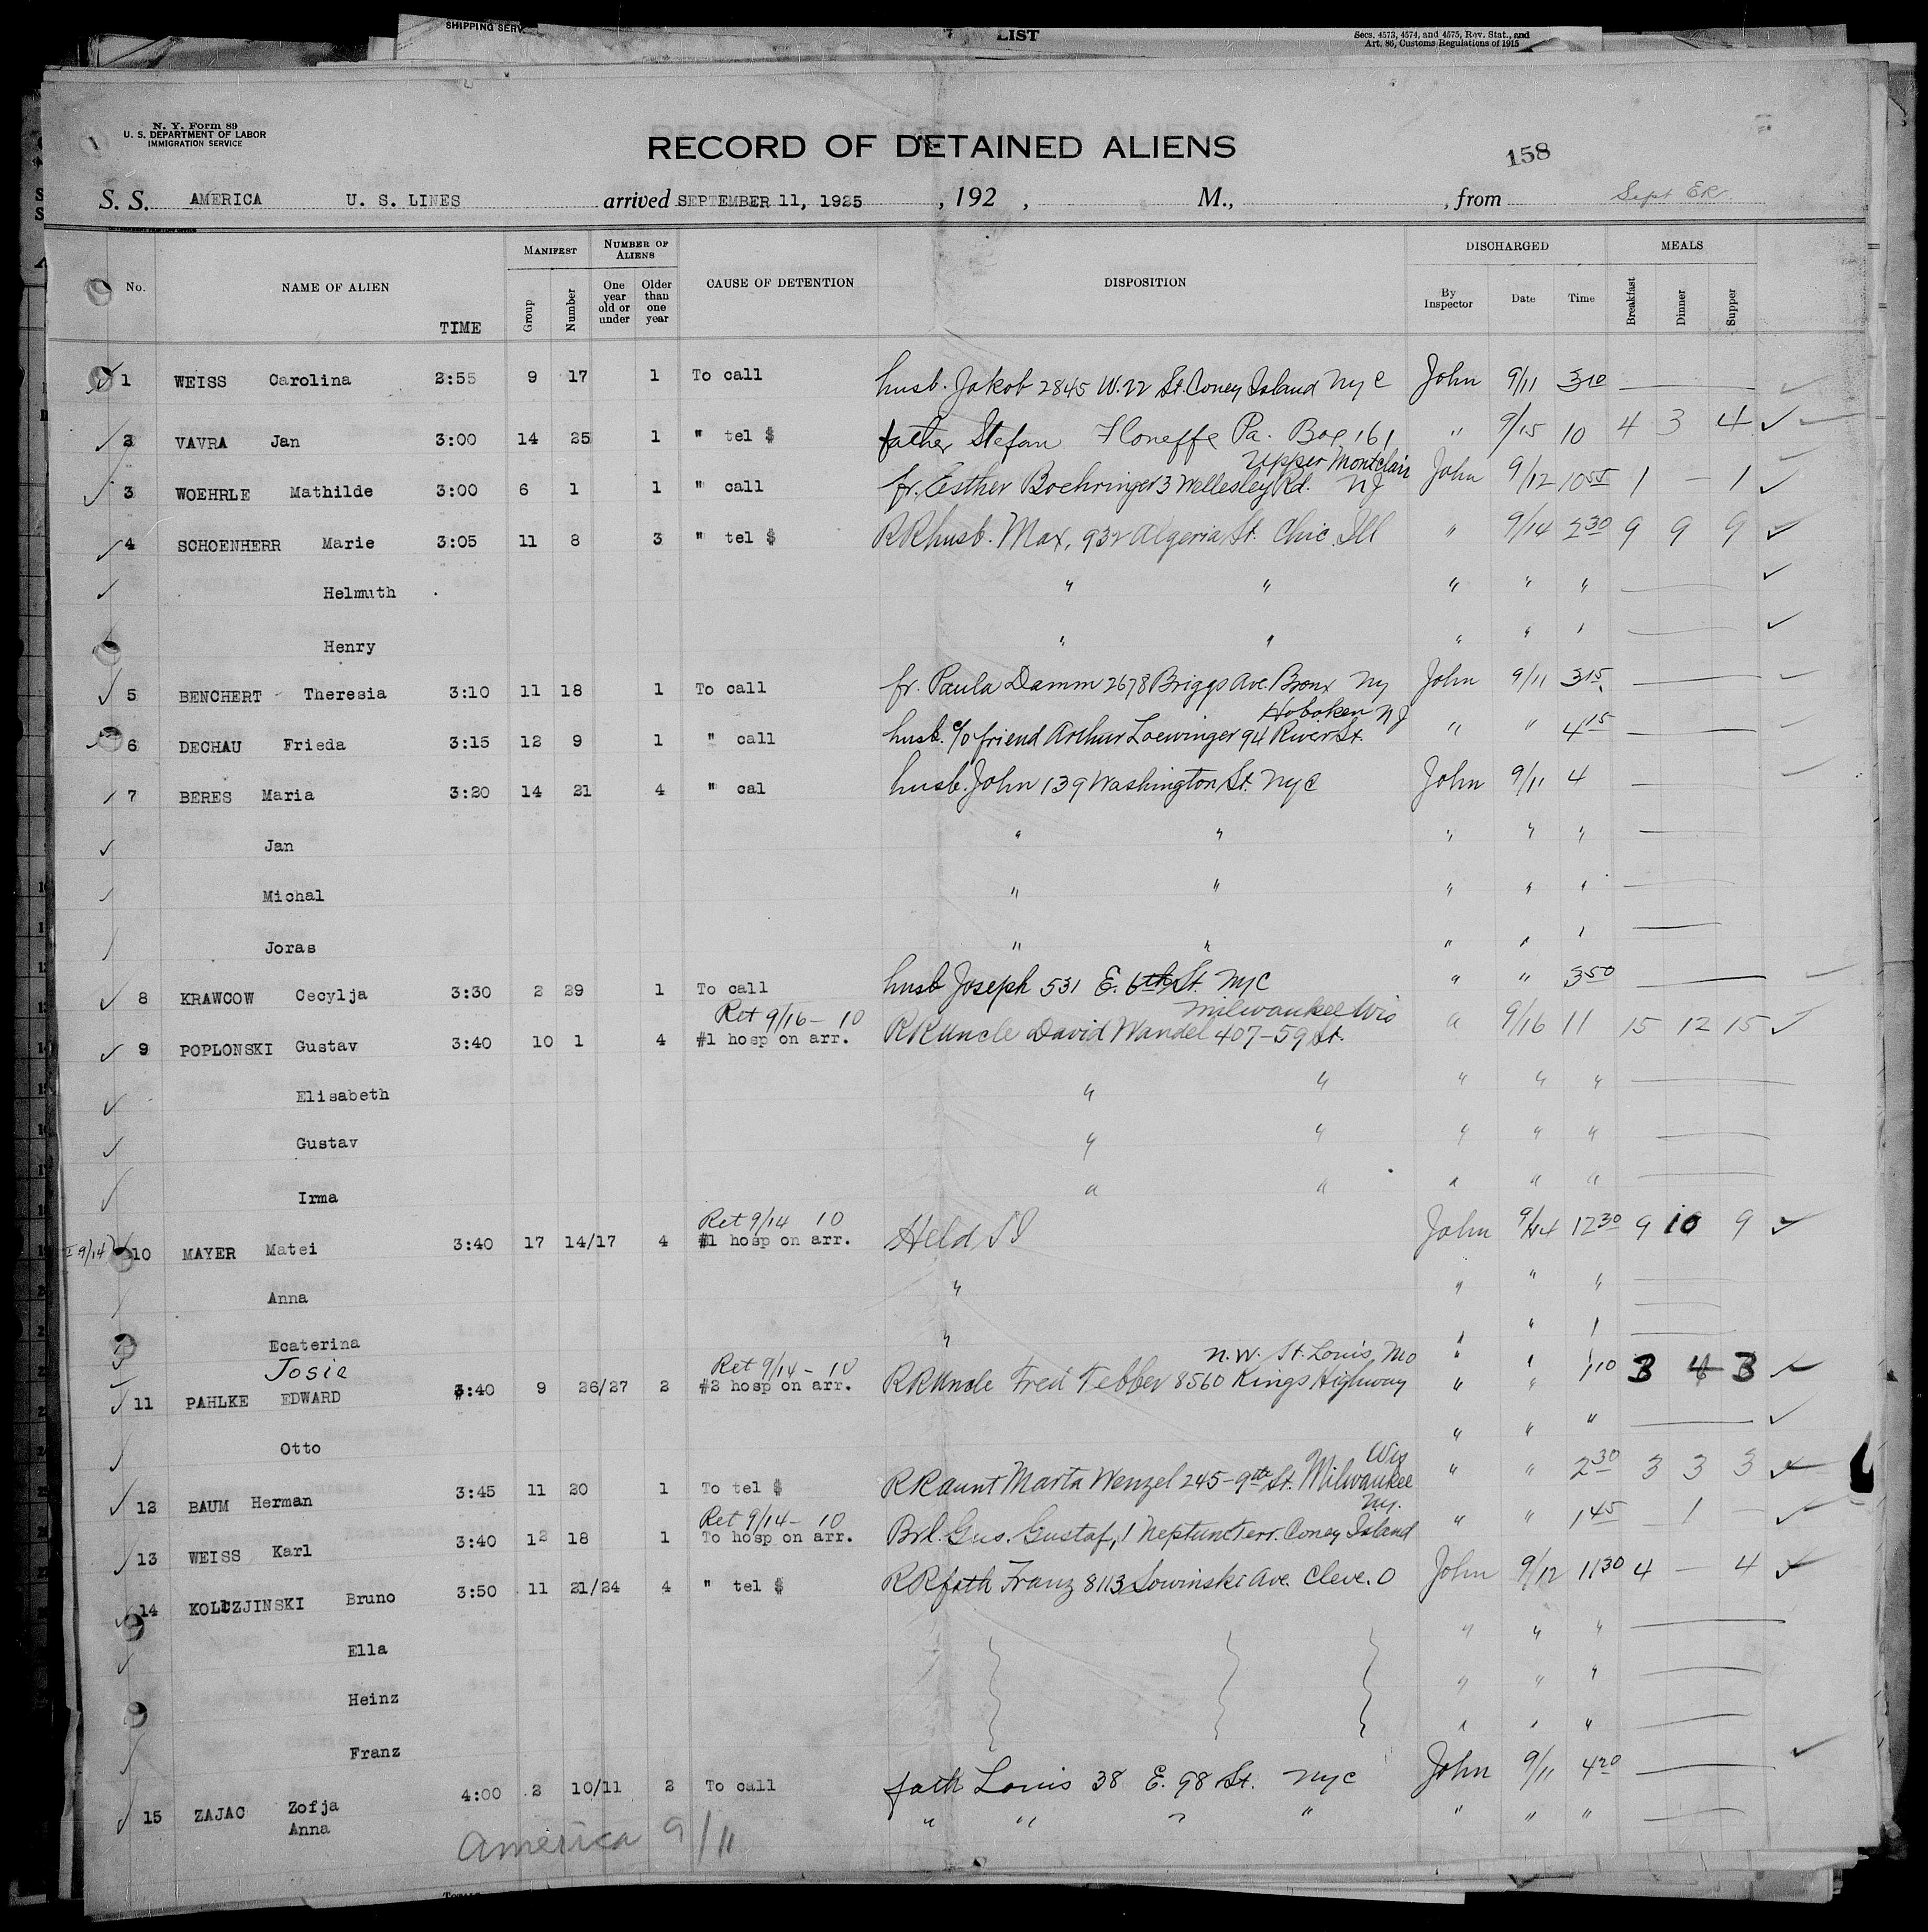 SHIPPING SERV.
LIST
Secs. 4573, 4574, and 4575, Rev. Stat., and
Art. 86, Customs Regulations of 1915
N. Y. Form 89
U. S. DEPARTMENT OF LABOR
IMMIGRATION SERVICE
RECORD OF DETAINED ALIENS
158
S. S. AMERICA U. S. LINES arrived SEPTEMBER 11, 1925, 192 , M., , from Sept ER
No. NAME OF ALIEN TIME MANIFEST Group Number NUMBER OF ALIENS One year old or under Older than one year CAUSE OF DETENTION DISPOSITION DISCHARGED By Inspector Date Time MEALS Breakfast Dinner Supper
1 WEISS Carolina 2:55 9 17 1 To call husb. Jakob 2845 W. 22 St. Coney Island NYC John 9/11 3 10
2 VAVRA Jan 3:00 14 25 1 " tel $ father Stefan Pa. Box 161 " 9/15 10 4 3 4
Upper Montclair
3 WOEHRLE Mathilde 3:00 6 1 1 " call fr. Esther Boehringer 3 Wellesley Rd. NJ John 9/12 10 55 1 – 1
4 SCHOENHERR Marie 3:05 11 8 3 " tel $ RR husb. Max, 932 Algeria St. Chic. Ill " 9/14 2 30 9 9 9
Helmuth " " " " "
Henry " " " " "
5 BENCHERT Theresia 3:10 11 18 1 To call fr. Paula Damm 2678 Briggs Ave. Bronx Ny John 9/11 3 15
Hoboken NJ
6 DECHAU Frieda 3:15 12 9 1 " call husb. c/o friend Arthur Loewinger 94 River St. " " 4 15
7 BERES Maria 3:20 14 21 4 " cal husb. John 139 Washington St. NYC John 9/11 4
Jan " " " " "
Michal " " " " "
Joras " " " " "
8 KRAWCOW Cecylja 3:30 2 29 1 To call husb Joseph 531 E. 6th St. NYC " " 3 50
Ret 9/16 – 10 Milwaukee Wis
9 POPLONSKI Gustav 3:40 10 1 4 #1 hosp on arr. RR Uncle David Wandel 407–59 St. " 9/16 11 15 12 15
Elisabeth " " " " "
Gustav " " " " "
Irma " " " " "
Ret 9/14 10
9/14 10 MAYER Matei 3:40 17 14/17 4 #1 hosp on arr. Held SI John 9/14 12 30 9 10 9
Anna " " " "
Ecaterina " " " "
Josie Ret 9/14 – 10 N.W. St. Louis, Mo " " "
11 PAHLKE EDWARD 3:40 9 26/27 2 #2 hosp on arr. RR Uncle Fred Febber 8560 Kings Highway " " 1 10 3 4 3
Otto " " "
Wis
12 BAUM Herman 3:45 11 20 1 To tel $ RR aunt Marta Wenzel 245–9th St. Milwaukee " " 2 30 3 3 3
Ret 9/14 – 10 Ny.
13 WEISS Karl 3:40 12 18 1 To hosp on arr. Gus. Gustaf, 1 Neptune Terr. Coney Island " " 1 45 – 1 –
14 KOLCZJINSKI Bruno 3:50 11 21/24 4 " tel $ RR fath Franz 8113 Sowinski Ave. Cleve. O John 9/12 11 30 4 – 4
Ella " " "
Heinz " " "
Franz " " "
15 ZAJAC Zofja 4:00 2 10/11 2 To call fath Louis 38 E. 98 St. NYC John 9/11 4 20
Anna " " " " " " "
America 9/11